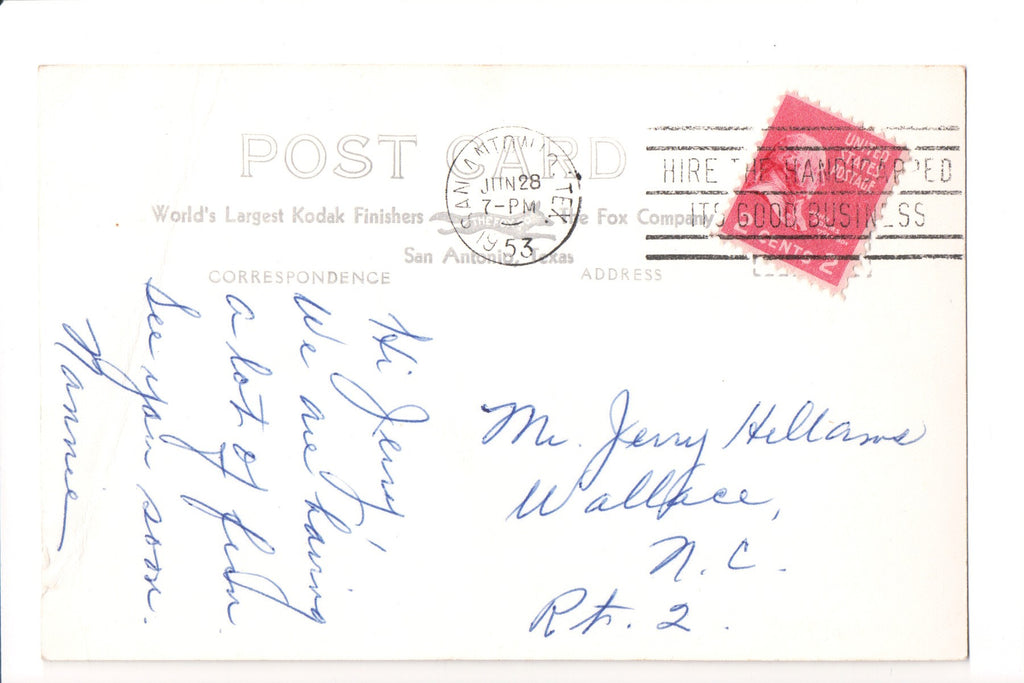 POST CARD
World's Largest Kodak Finishers The Fox Company
San Antonio, Texas
CORRESPONDENCE
ADDRESS
SAN ANTONIO, TEX.
JUN 28
7-PM
1953
HIRE THE HANDICAPPED
ITS GOOD BUSINESS
UNITED
STATES
POSTAGE
2 CENTS 2
Hi Jerry'
We are having
a lot of fun.
See you soon.
Nannie
Mr. Jerry Hellams
Wallace,
N. C.
Rt. 2.